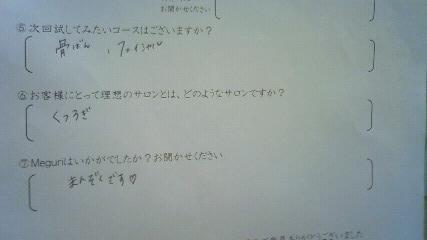 お聞かせください
⑤次回試してみたいコースはございますか?
骨ばん、フェイシャル
⑥お客様にとって理想のサロンとは、どのようなサロンですか?
くつろぎ
⑦Meguriはいかがでしたか?お聞かせください
まんぞくです♡
ありがとうございました